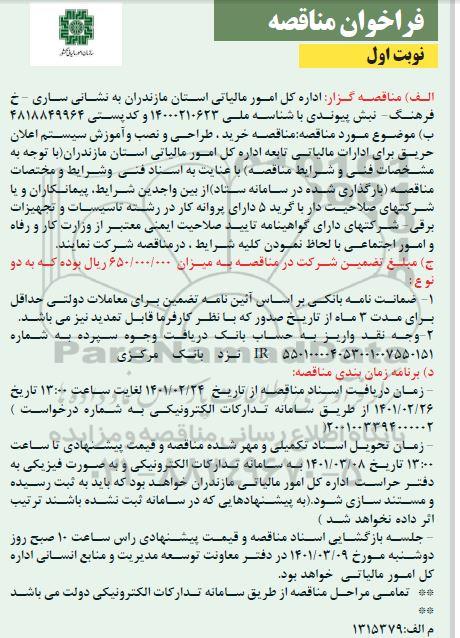 فراخوان مناقصه
نوبت اول
سازمان امور مالیاتی کشور
الف) مناقصه گزار: اداره کل امور مالیاتی استان مازندران به نشانی ساری - خ
فرهنگ- نبش پیوندی با شناسه ملی ۱۴۰۰۰۲۱۰۶۲۳ و کدپستی ۴۸۱۸۸۴۹۹۶۴
ب) موضوع مورد مناقصه:مناقصه خرید ، طراحی و نصب وآموزش سیستم اعلان
حریق برای ادارات مالیاتی تابعه اداره کل امور مالیاتی استان مازندران(با توجه به
مشخصات فنی و شرایط مناقصه) با عنایت به اسناد فنی وشرایط و مختصات
مناقصه (بارگذاری شده در سامانه ستاد)از بین واجدین شرایط، پیمانکاران و یا
شرکتهای صلاحیت دار با گرید ۵ دارای پروانه کار در رشته تاسیسات و تجهیزات
برقی- شرکتهای دارای گواهینامه تایید صلاحیت ایمنی معتبر از وزارت کار و رفاه
و امور اجتماعی با لحاظ نمودن کلیه شرایط ، درمناقصه شرکت نمایند.
ج) مبلغ تضمین شرکت در مناقصه به میزان ۶۵۰/۰۰۰/۰۰۰ ریال بوده که به دو
نوع:
۱- ضمانت نامه بانکی بر اساس آئین نامه تضمین برای معاملات دولتی حداقل
برای مدت ۳ ماه از تاریخ صدور که با نظر کارفرما قابل تمدید نیز می باشد.
۲-وجه نقد واریز به حساب بانک دریافت وجوه سپرده به شماره
IR ۵۵۰۱۰۰۰۰۴۰۵۳۰۰۱۰۰۷۵۵۰۱۵۱ نزد بانک مرکزی
د) برنامه زمان بندی مناقصه:
- زمان دریافت اسناد مناقصه از تاریخ ۱۴۰۱/۰۲/۲۴ لغایت ساعت ۱۳:۰۰ تاریخ
۱۴۰۱/۰۲/۲۶ از طریق سامانه تدارکات الکترونیکی به شماره درخواست (
۲۰۰۱۰۰۳۳۹۴۰۰۰۰۰۲)
- زمان تحویل اسناد تکمیلی و مهر شده مناقصه و قیمت پیشنهادی تا ساعت
۱۳:۰۰ تاریخ ۱۴۰۱/۰۳/۰۸ به سامانه تدارکات الکترونیکی و به صورت فیزیکی به
دفتر حراست اداره کل امور مالیاتی مازندران خواهد بود که باید به ثبت رسیده
و مستند سازی شود.(به پیشنهادهایی که در سامانه ثبت نشده باشند ترتیب
اثر داده نخواهد شد )
- جلسه بازگشایی اسناد مناقصه و قیمت پیشنهادی راس ساعت ۱۰ صبح روز
دوشنبه مورخ ۱۴۰۱/۰۳/۰۹ در دفتر معاونت توسعه مدیریت و منابع انسانی اداره
کل امور مالیاتی خواهد بود.
** تمامی مراحل مناقصه از طریق سامانه تدارکات الکترونیکی دولت می باشد
**
م الف:۱۳۱۵۳۷۹